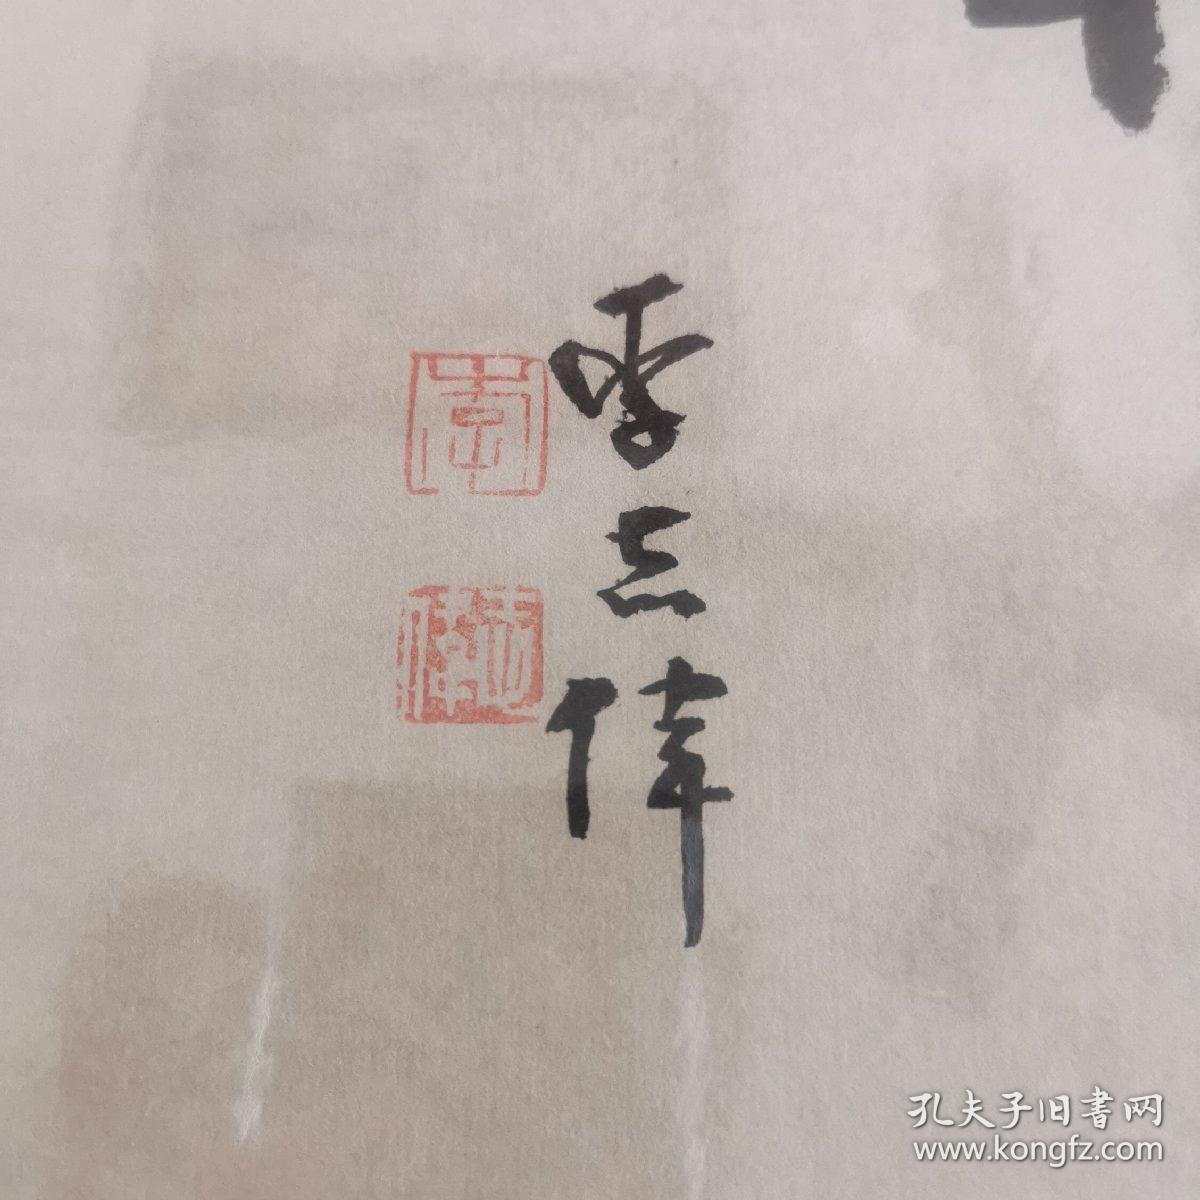 李志偉
孔夫子旧書网
www.kongfz.com